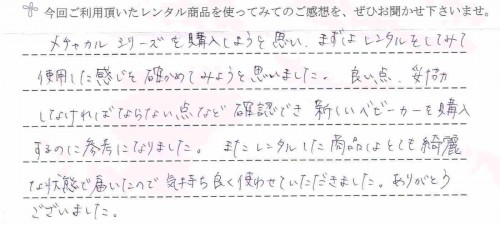 今回ご利用頂いたレンタル商品を使ってみてのご感想を、ぜひお聞かせ下さいませ。
メチャカル シリーズを購入しようと思い、まずはレンタルをしてみて
使用した感じを確かめてみようと思いました。 良い点、妥協
しなければならない点など 確認でき 新しいベビーカーを購入
するのに参考になりました。 またレンタルした商品はとても綺麗
な状態で届いたので 気持ち良く使わせていただきました。ありがとう
ございました。